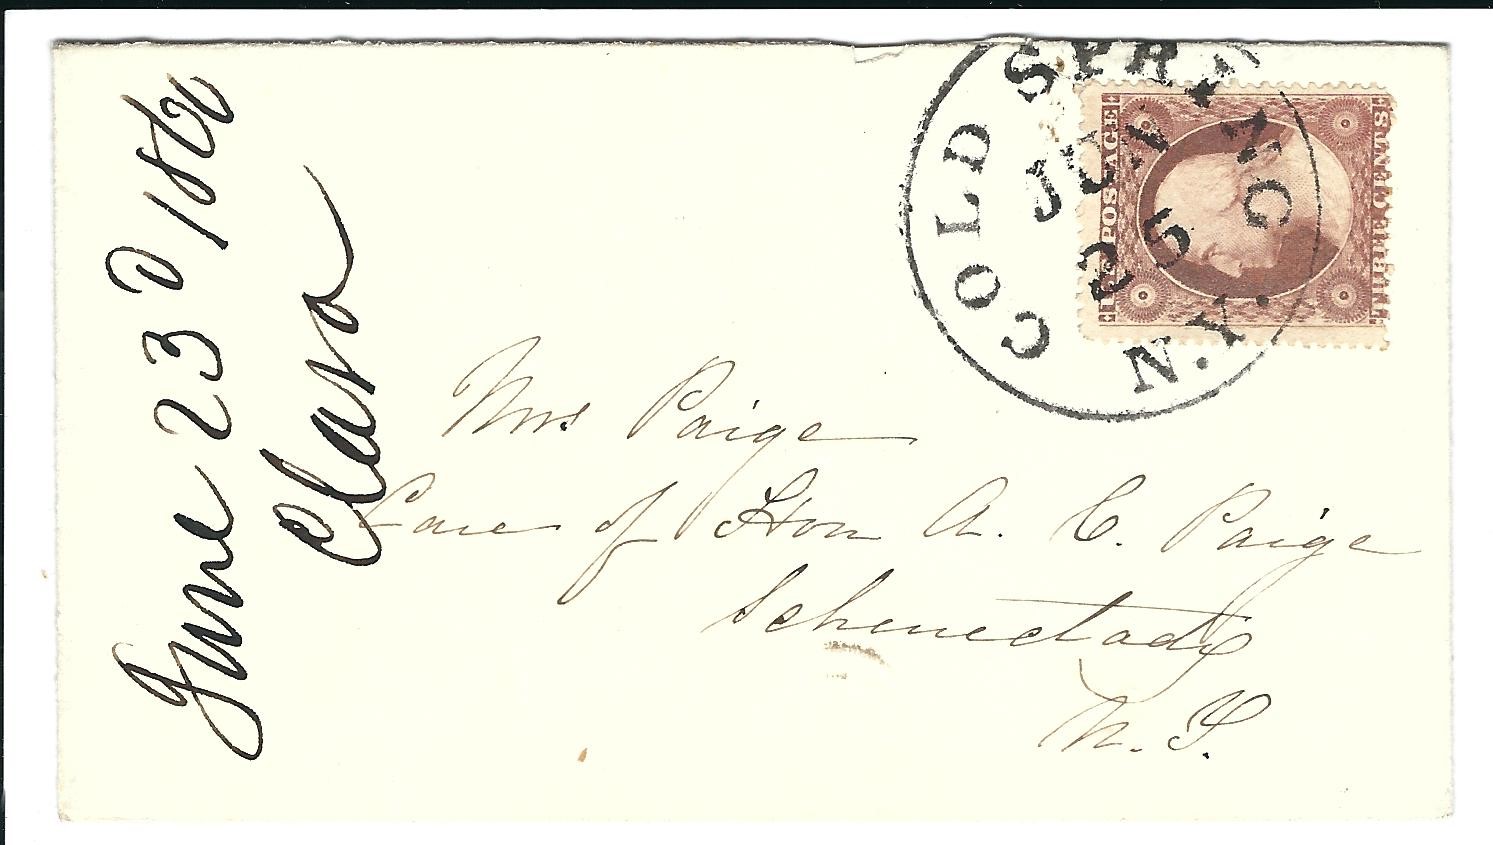 June 23d 1860
Clara
COLD SPRING
JUN
25
N.Y.
U.S. POSTAGE
THREE CENTS
Mrs Paige
Care of Hon A. C. Paige
Schenectady
N. Y.